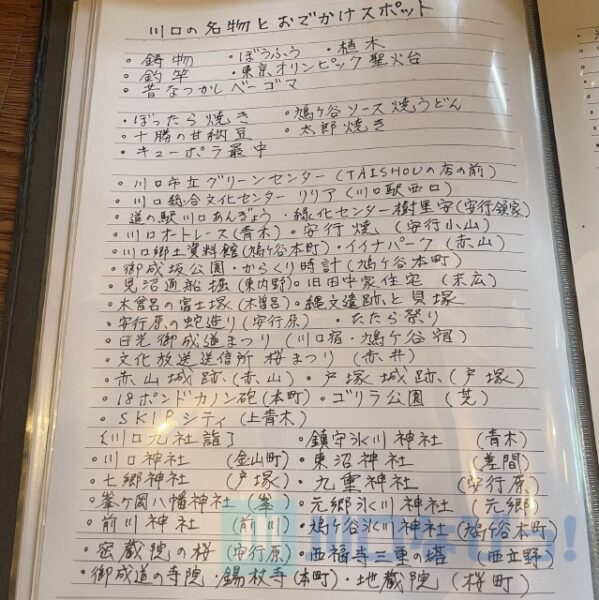 川口の名物とおでかけスポット
・鋳物 ・ぼうふう ・植木
・釣竿 ・東京オリンピック聖火台
・昔なつかしベーゴマ
・ぼったら焼き ・鳩ヶ谷ソース焼うどん
・十勝の甘納豆 ・太郎焼き
・キューポラ最中
・川口市立グリーンセンター (TAISHOUの店の前)
・川口総合文化センター リリア (川口駅西口)
・道の駅川口あんぎょう ・緑化センター樹里安(安行領家)
・川口オートレース(青木) ・安行焼、(安行小山)
・川口郷土資料館(鳩ヶ谷本町)・イイナパーク (赤山)
・御成坂公園・からくり時計 (鳩ヶ谷本町)
・見沼通船堀(東内野) ・旧田中家住宅 (末広)
・木曽呂の富士塚(木曽呂)・縄文遺跡と貝塚
・安行原の蛇造り(安行原) ・たたら祭り
・日光御成道まつり (川口宿・鳩ヶ谷宿)
・文化放送送信所 桜まつり (赤井)
・赤山城跡、(赤山) ・戸塚城跡、(戸塚)
・18ポンドカノン砲(本町)・ゴリラ公園 (芝)
・SKIPシティ(上青木)
[川口九社詣] ・鎮守氷川神社 (青木)
・川口神社 (金山町)・東沼神社 (差間)
・七郷神社 (戸塚) ・九重神社 (安行原)
・峯ヶ岡八幡神社 (峯) ・元郷氷川神社 (元郷)
・前川神社 (前川) ・鳩ヶ谷氷川神社(鳩ヶ谷本町)
・密蔵院の桜(安行原)・西福寺三重の塔 (西立野)
・御成道の寺院・錫杖寺(本町)・地蔵院 (桜町)